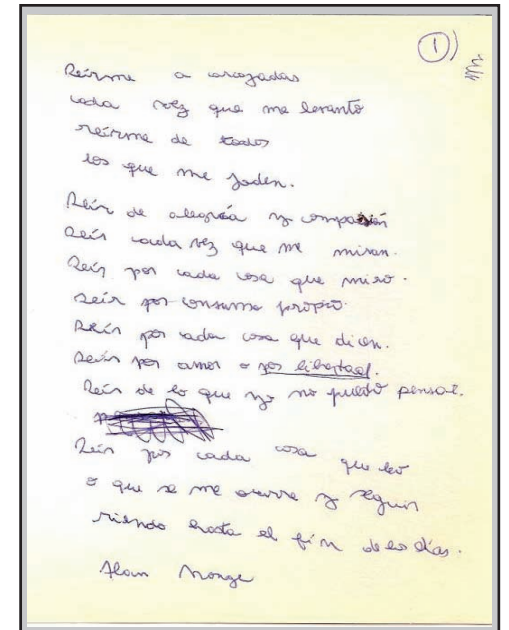 1)
Reirme a carcajadas
cada vez que me levanto
reirme de todos
los que me joden.
Reír de alegría y compasión
Reír cada vez que me miran.
Reír por cada cosa que miro.
Reír por consumo propio.
Reír por cada cosa que dicen.
Reír por amor o por libertad.
Reír de lo que yo no puedo pensar.
Reír por cada cosa que leo
o que se me ocurra y seguir
riendo hasta el fin de los días.
Alam Monge